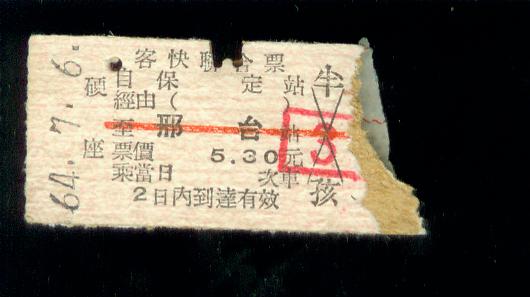 64.7.6.
客快聯合票
硬座
自保定站
經由( )
至邢台站
票價5.30元
乘當日 次車
2日內到達有效
半
孩